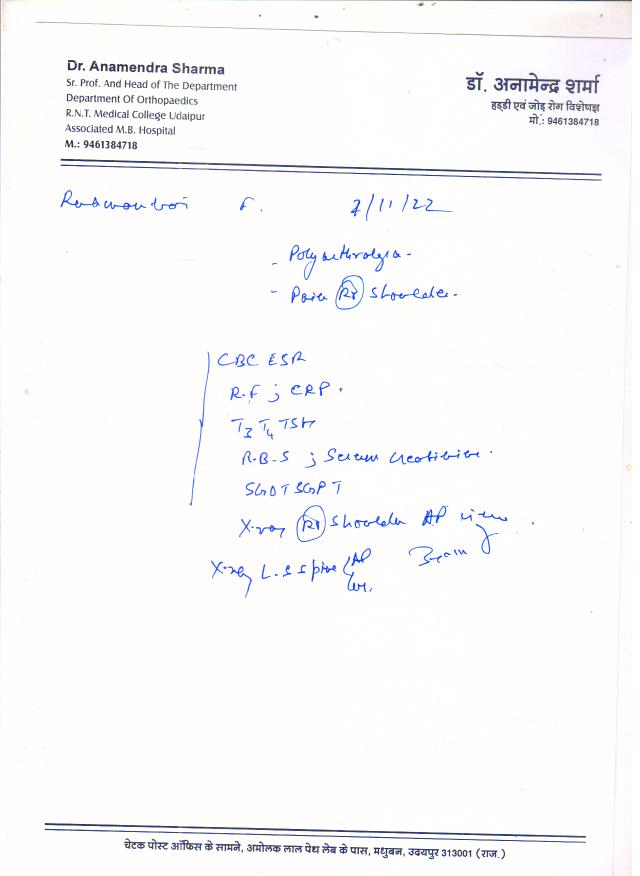 Dr. Anamendra Sharma
Sr. Prof. And Head of The Department
Department Of Orthopaedics
R.N.T. Medical College Udaipur
Associated M.B. Hospital
M.: 9461384718
डॉ. अनामेन्द्र शर्मा
हड्डी एवं जोड़ रोग विशेषज्ञ
मो.: 9461384718
F. 7/11/22
- Polyarthralgia -
- Pain Rt Shoulder.
CBC ESR
R.F ; CRP.
T3 T4 TSH
R.B.S ; Serum Creatinine.
SGOT SGPT
X-ray Rt Shoulder AP view.
X-ray L.S Spine AP
चेटक पोस्ट ऑफिस के सामने, अमोलक लाल पेथ लेब के पास, मधुबन, उदयपुर 313001 (राज.)